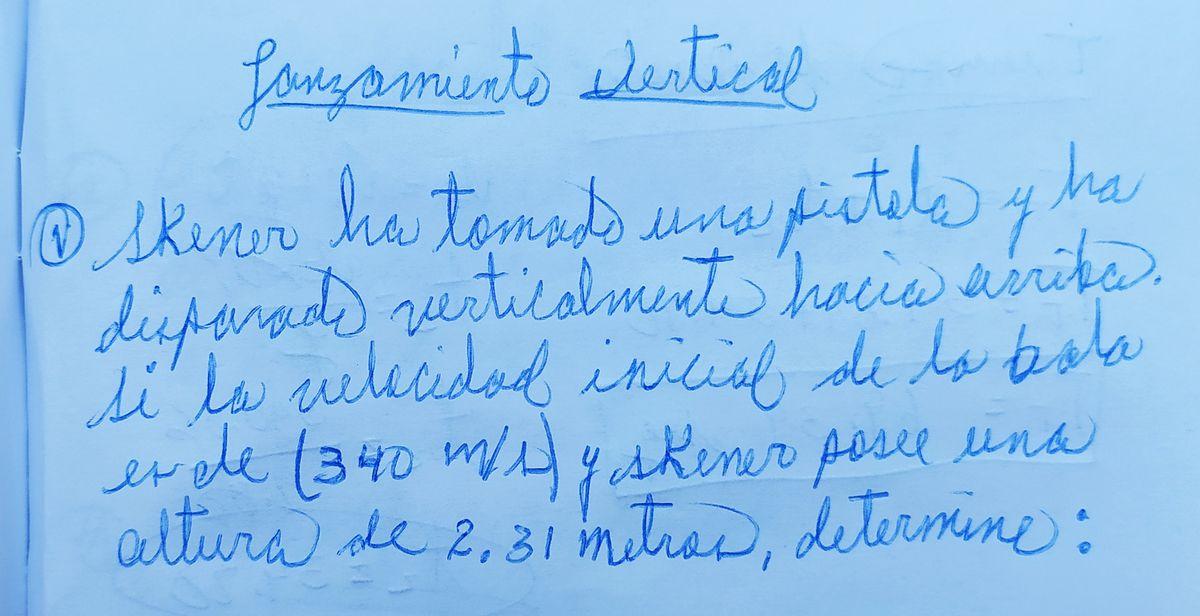 Lanzamiento Vertical
1 Skener ha tomado una pistola y ha
disparado verticalmente hacia arriba.
Si la velocidad inicial de la bala
es de (340 m/s) y Skener posee una
altura de 2.31 metros, determine: